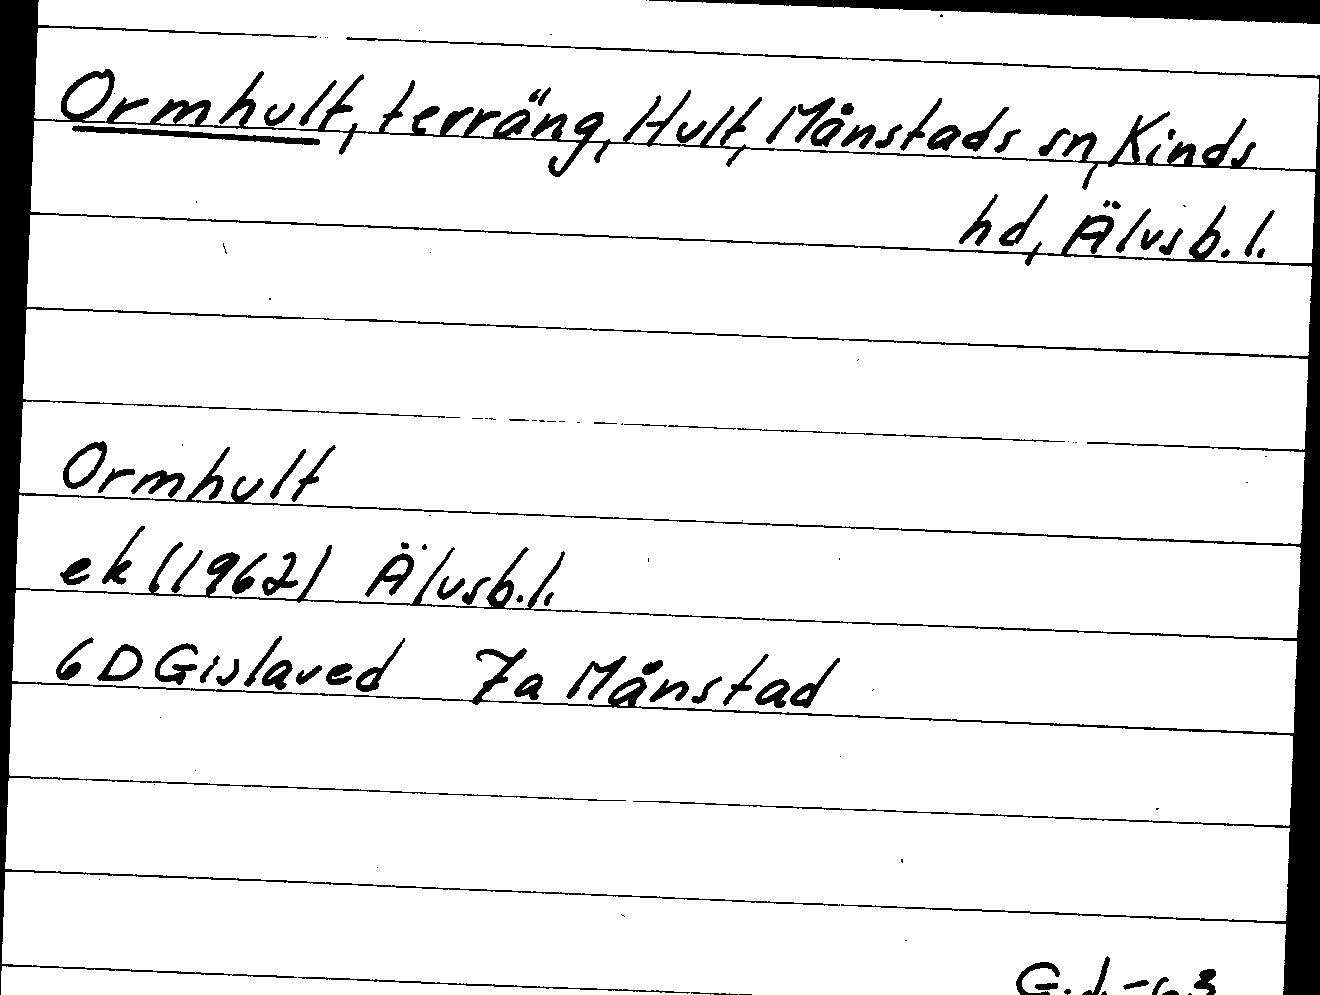 Ormhult, terräng, Hult, Månstads sn, Kinds
hd, Älvsb. l.
Ormhult
ek (1962) Älvsb. l.
6D Gislaved 7a Månstad